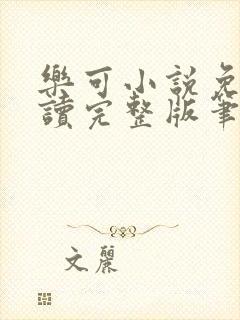 樂可小說免
讀完整版筆
文麗